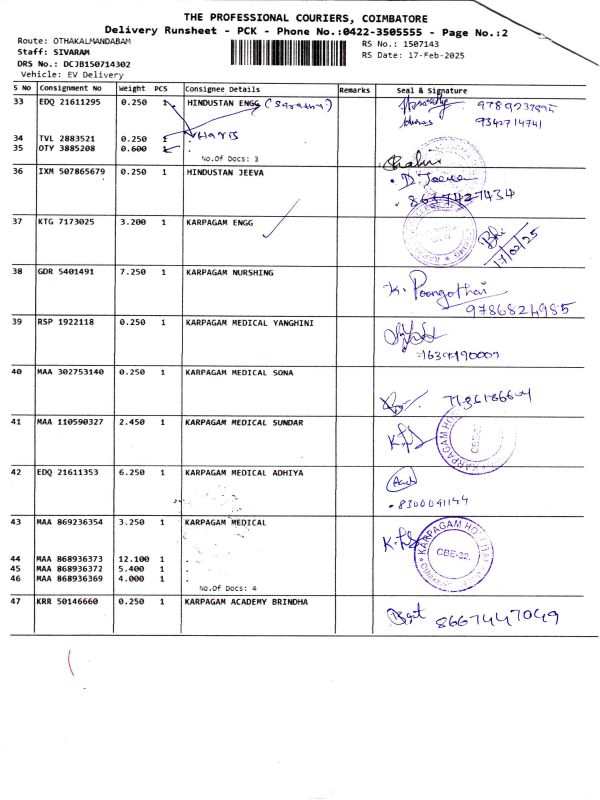 THE PROFESSIONAL COURIERS, COIMBATORE
Delivery Runsheet - PCK - Phone No.:0422-3505555 - Page No.:2
Route: OTHAKALMANDABAM
RS No.: 1507143
Staff: SIVARAM
RS Date: 17-Feb-2025
DRS No.: DCJB150714302
Vehicle: EV Delivery
S No Consignment No Weight PCS Consignee Details Remarks Seal & Signature
33 EDQ 21611295 0.250 1 HINDUSTAN ENGG (Saratha) 9789237895
9342714741
Haris
34 TVL 2883521 0.250 1 .
35 OTY 3885208 0.600 1 .
No.Of Docs: 3
36 IXM 507865679 0.250 1 HINDUSTAN JEEVA
D. Jeeva
8637427434
37 KTG 7173025 3.200 1 KARPAGAM ENGG
17/02/25
38 GDR 5401491 7.250 1 KARPAGAM NURSHING
K. Poongothai
9786824985
39 RSP 1922118 0.250 1 KARPAGAM MEDICAL YANGHINI
40 MAA 302753140 0.250 1 KARPAGAM MEDICAL SONA
41 MAA 110590327 2.450 1 KARPAGAM MEDICAL SUNDAR
42 EDQ 21611353 6.250 1 KARPAGAM MEDICAL ADHIYA
8300041144
43 MAA 869236354 3.250 1 KARPAGAM MEDICAL
KARPAGAM
CBE-32.
44 MAA 868936373 12.100 1 .
45 MAA 868936372 5.400 1 .
46 MAA 868936369 4.000 1 .
No.Of Docs: 4
47 KRR 50146660 0.250 1 KARPAGAM ACADEMY BRINDHA
8667447049